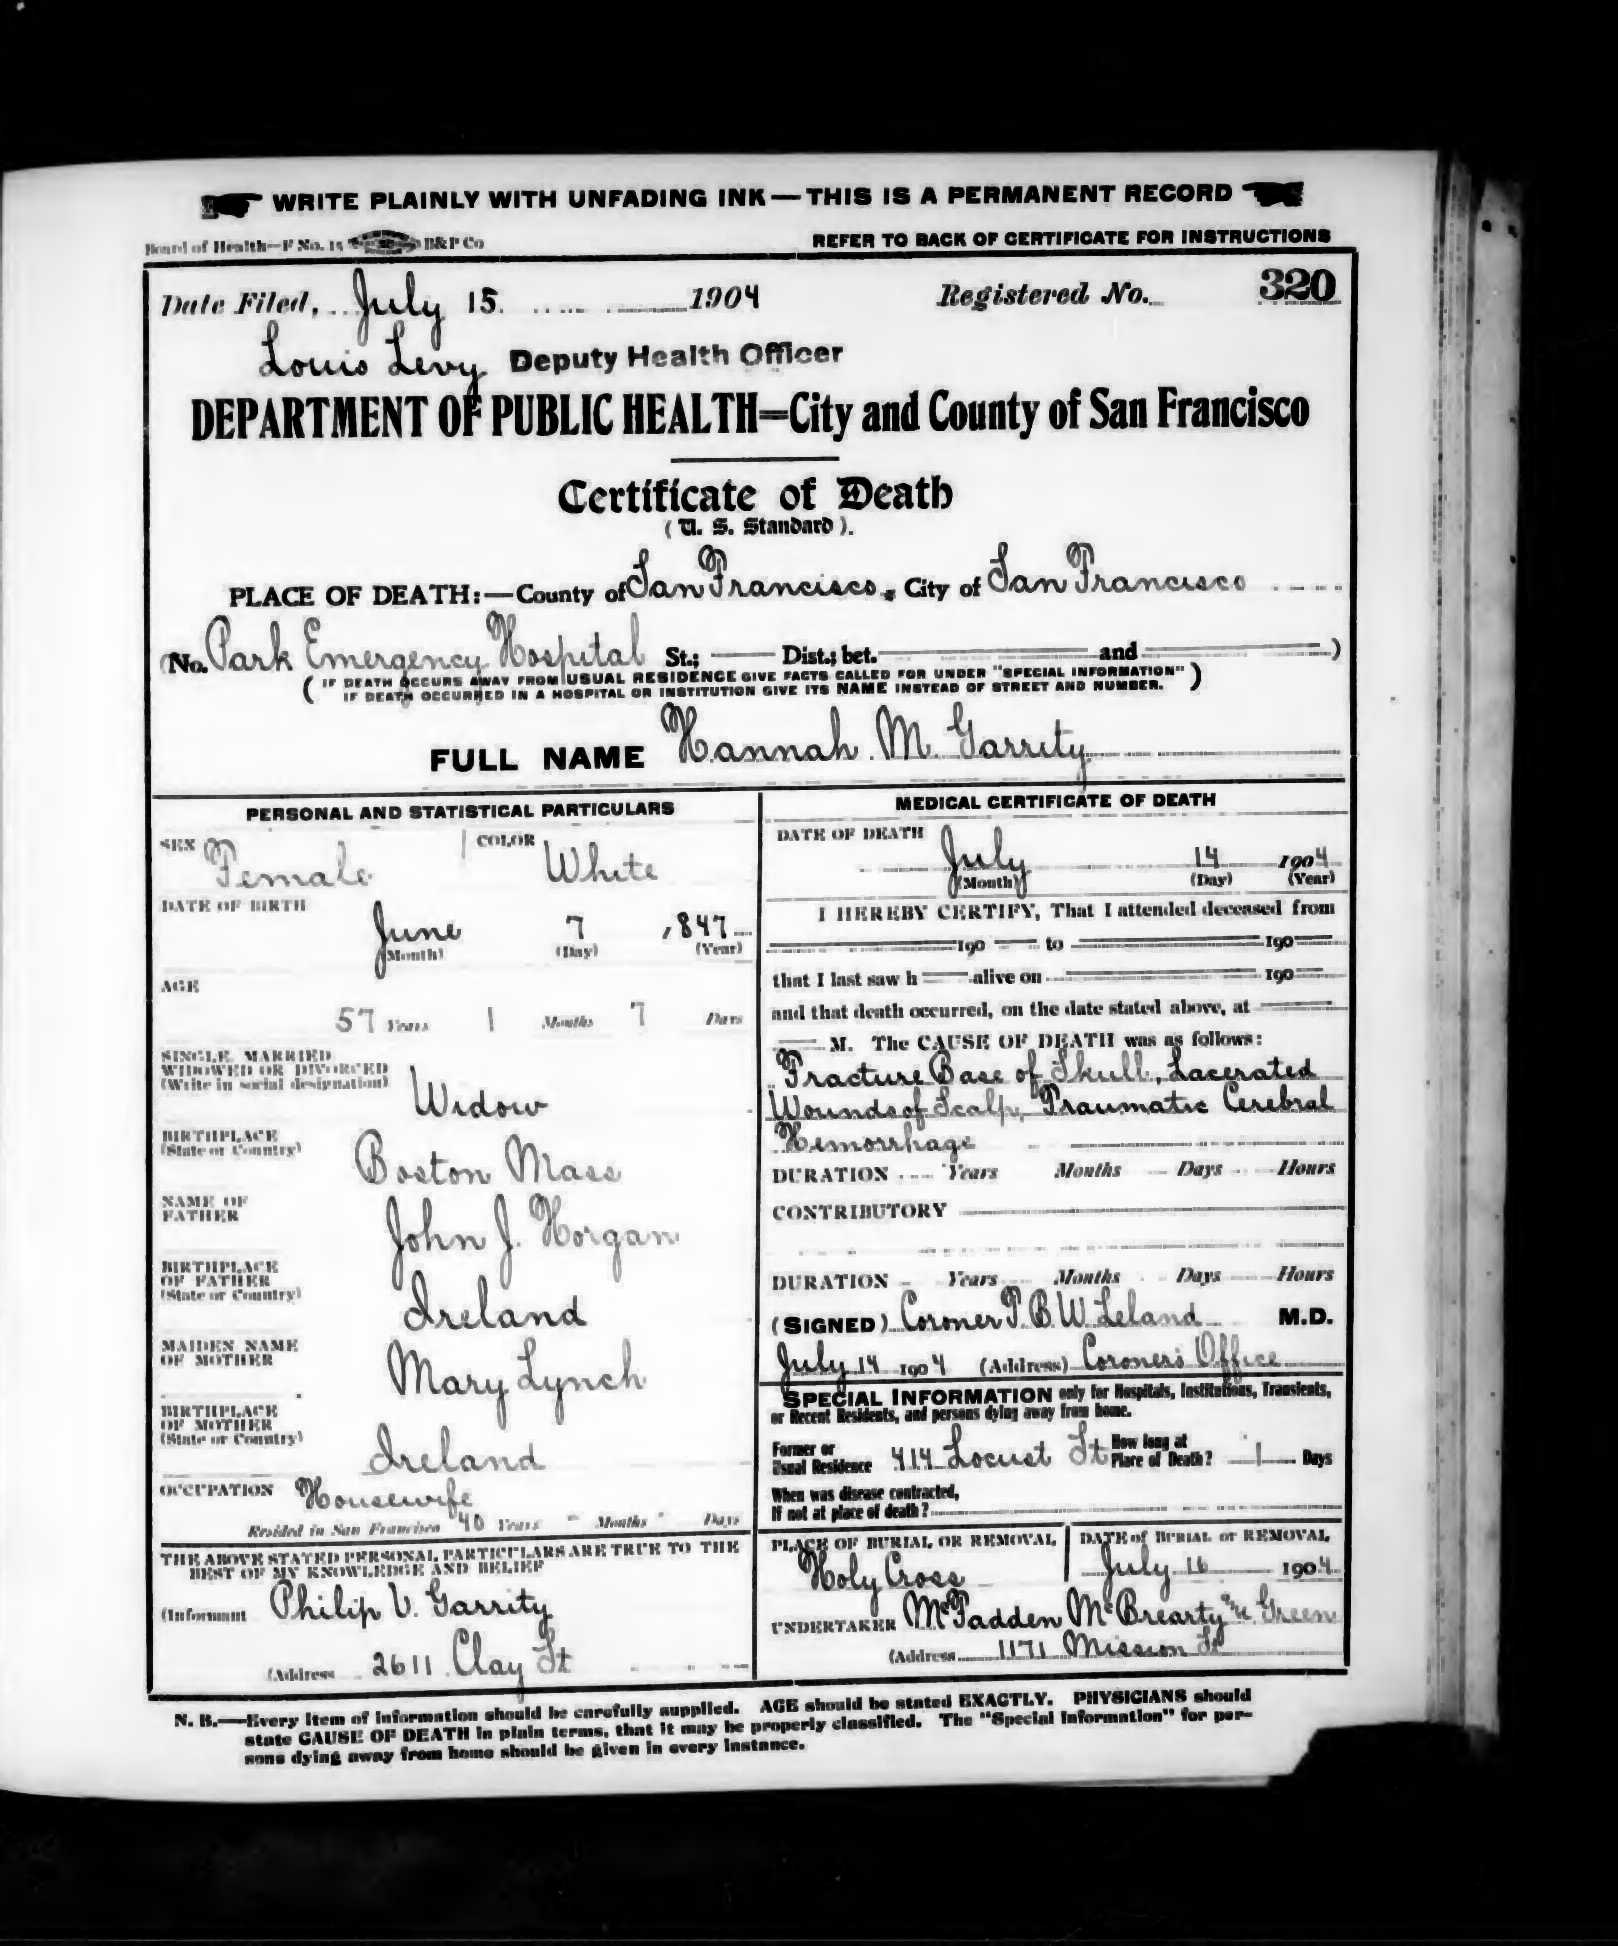 WRITE PLAINLY WITH UNFADING INK—THIS IS A PERMANENT RECORD
Board of Health—F No. 15 B&P Co
REFER TO BACK OF CERTIFICATE FOR INSTRUCTIONS
Date Filed, July 15 1904 Registered No. 320
Louis Levy Deputy Health Officer
DEPARTMENT OF PUBLIC HEALTH—City and County of San Francisco
Certificate of Death
(U. S. Standard).
PLACE OF DEATH:—County of San Francisco, City of San Francisco
(No. Park Emergency Hospital St.; Dist.; bet. and )
( IF DEATH OCCURS AWAY FROM USUAL RESIDENCE GIVE FACTS CALLED FOR UNDER "SPECIAL INFORMATION" )
IF DEATH OCCURRED IN A HOSPITAL OR INSTITUTION GIVE ITS NAME INSTEAD OF STREET AND NUMBER.
FULL NAME Hannah M. Garrity
PERSONAL AND STATISTICAL PARTICULARS
SEX Female COLOR White
DATE OF BIRTH
June 7 1847
(Month) (Day) (Year)
AGE
57 Years 1 Months 7 Days
SINGLE, MARRIED
WIDOWED OR DIVORCED
(Write in social designation) Widow
BIRTHPLACE
(State or Country) Boston Mass
NAME OF
FATHER John J. Horgan
BIRTHPLACE
OF FATHER
(State or Country) Ireland
MAIDEN NAME
OF MOTHER Mary Lynch
BIRTHPLACE
OF MOTHER
(State or Country) Ireland
OCCUPATION Housewife
Resided in San Francisco 40 Years - Months - Days
THE ABOVE STATED PERSONAL PARTICULARS ARE TRUE TO THE
BEST OF MY KNOWLEDGE AND BELIEF
(Informant Philip V. Garrity
(Address 2611 Clay St
MEDICAL CERTIFICATE OF DEATH
DATE OF DEATH
July 14 1904
(Month) (Day) (Year)
I HEREBY CERTIFY, That I attended deceased from
190 to 190
that I last saw h alive on 190
and that death occurred, on the date stated above, at
M. The CAUSE OF DEATH was as follows:
Fracture Base of Skull, Lacerated
Wounds of Scalp, Traumatic Cerebral
Hemorrhage
DURATION Years Months Days Hours
CONTRIBUTORY
DURATION Years Months Days Hours
(SIGNED) Coroner T. B. W. Leland M.D.
July 14 1904 (Address) Coroner's Office
SPECIAL INFORMATION only for Hospitals, Institutions, Transients,
or Recent Residents, and persons dying away from home.
Former or
Usual Residence 414 Locust St How long at
Place of Death? 1 Days
When was disease contracted,
If not at place of death?
PLACE OF BURIAL OR REMOVAL
Holy Cross
DATE of BURIAL or REMOVAL
July 16 1904
UNDERTAKER McFadden McBrearty & Green
(Address 1171 Mission St
N. B.—Every item of information should be carefully supplied. AGE should be stated EXACTLY. PHYSICIANS should
state CAUSE OF DEATH in plain terms, that it may be properly classified. The "Special Information" for per-
sons dying away from home should be given in every instance.